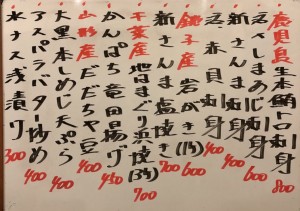 鹿児島産 生本鮪トロ刺身 800
活〆しまあじ刺身 600
新さんま刺身 400
活赤貝刺身
銚子産 岩がき(1ケ) 600
新さんま塩焼き 400
千葉産 地はまぐり浜焼(3ケ) 700
かんぱち竜田揚げ 450
山形産 だだちゃ豆 400
大黒本しめじ天ぷら 400
アスパラバター炒め 400
水ナス浅漬け 300